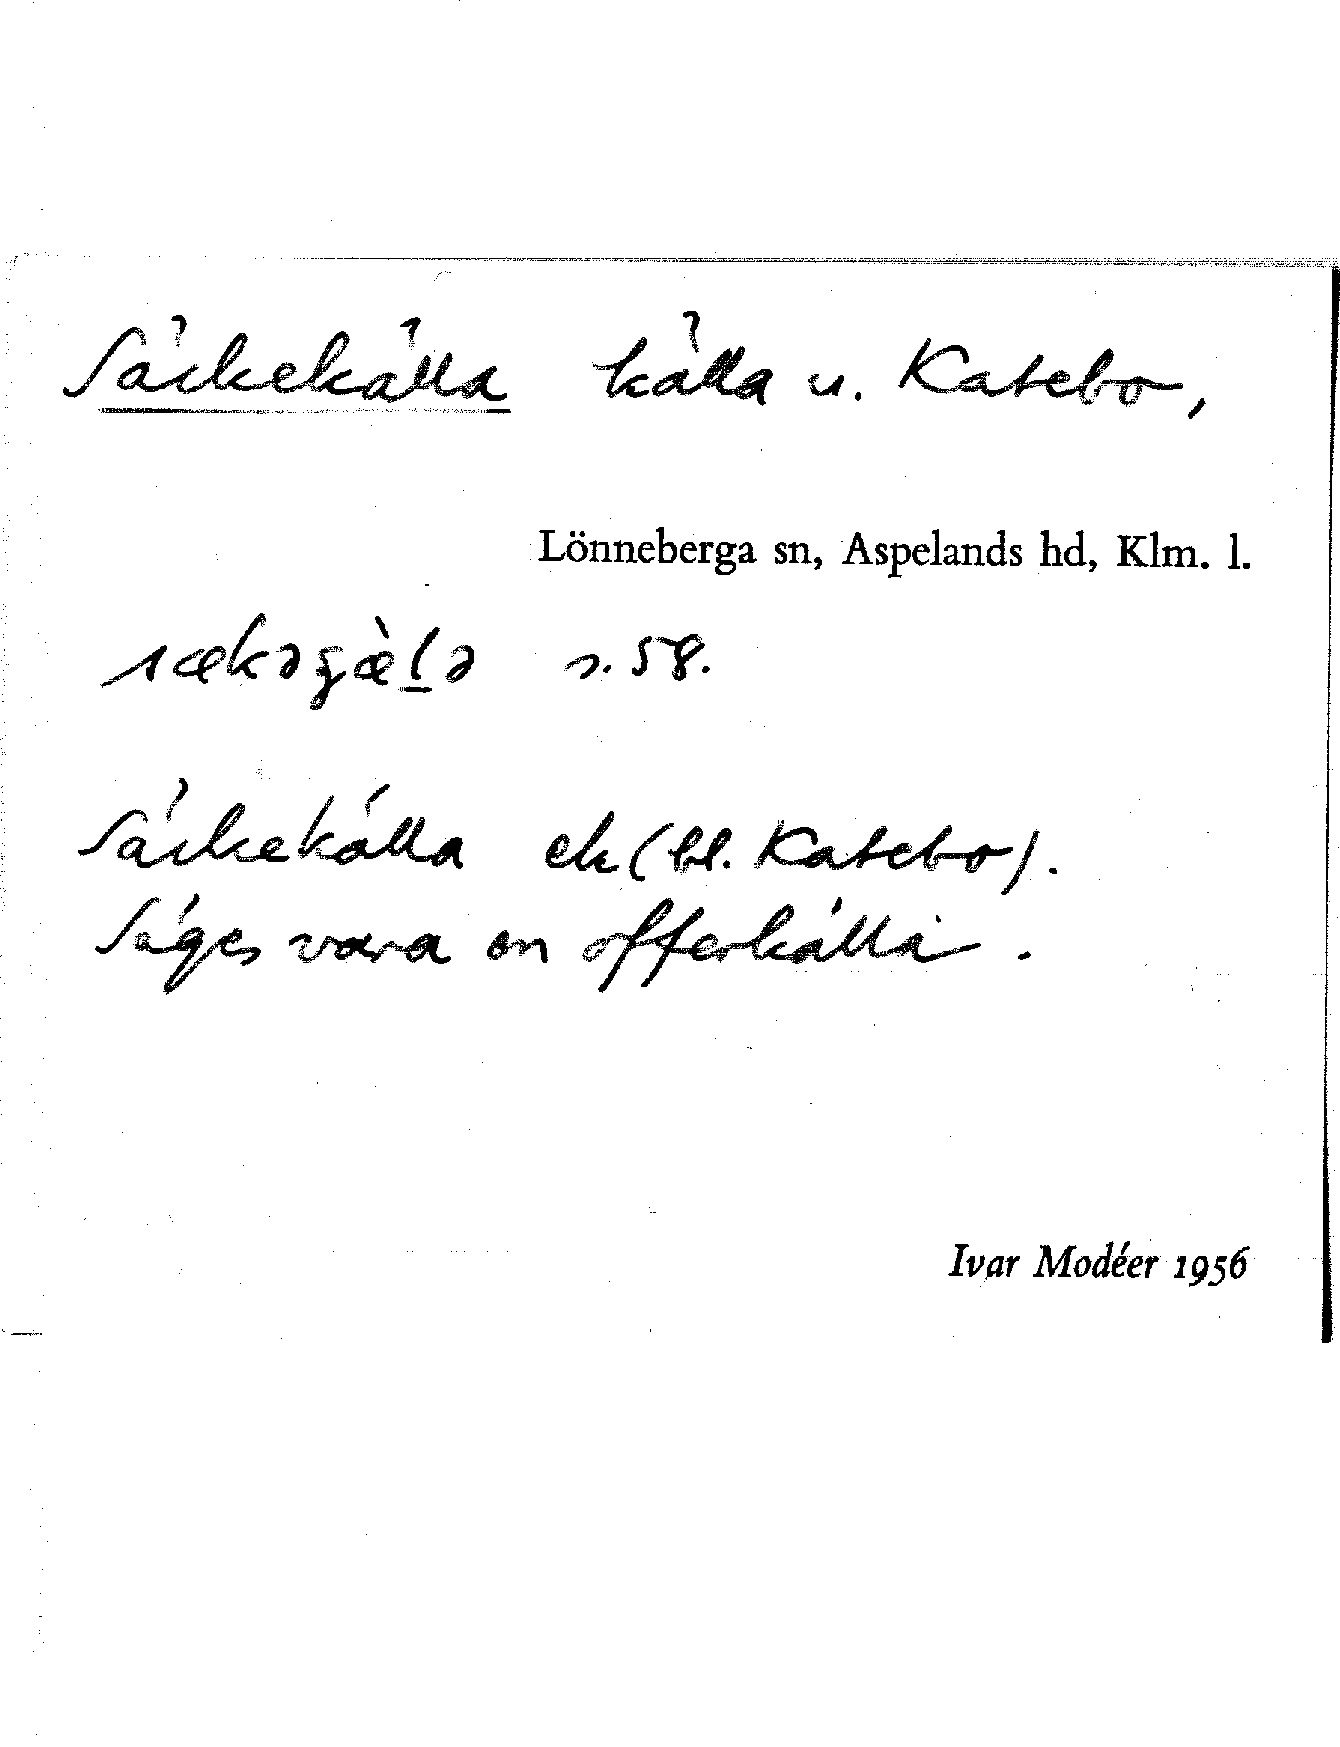 Säckekälla källa u. Katebo,
Lönneberga sn, Aspelands hd, Klm. l.
s. 58.
Säckekälla ek (bl. Katebo).
Säges vara en offerkälla.
Ivar Modéer 1956